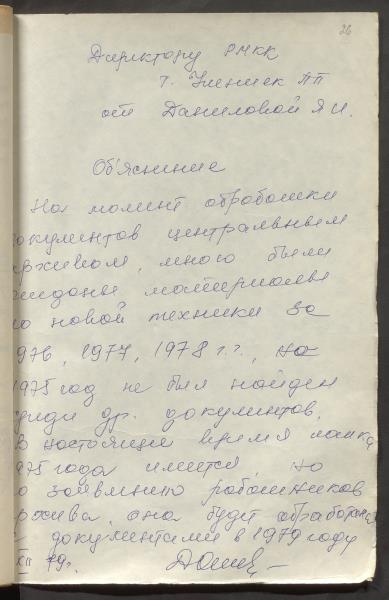 26
Директору РМКК
т. Уженцек ПП
от Даниловой Я И.
Объяснение
На момент обработки
окументов центральным
рхивом, много были
материалы
о новой техники за
976, 1977, 1978 г.г., но
1975 год не был найден
реди др. документов.
В настоящие время папка
975 года имеется, но
о заявлению работников
рхива, она будет обработана
с документами в 1979 году
XII 79г.